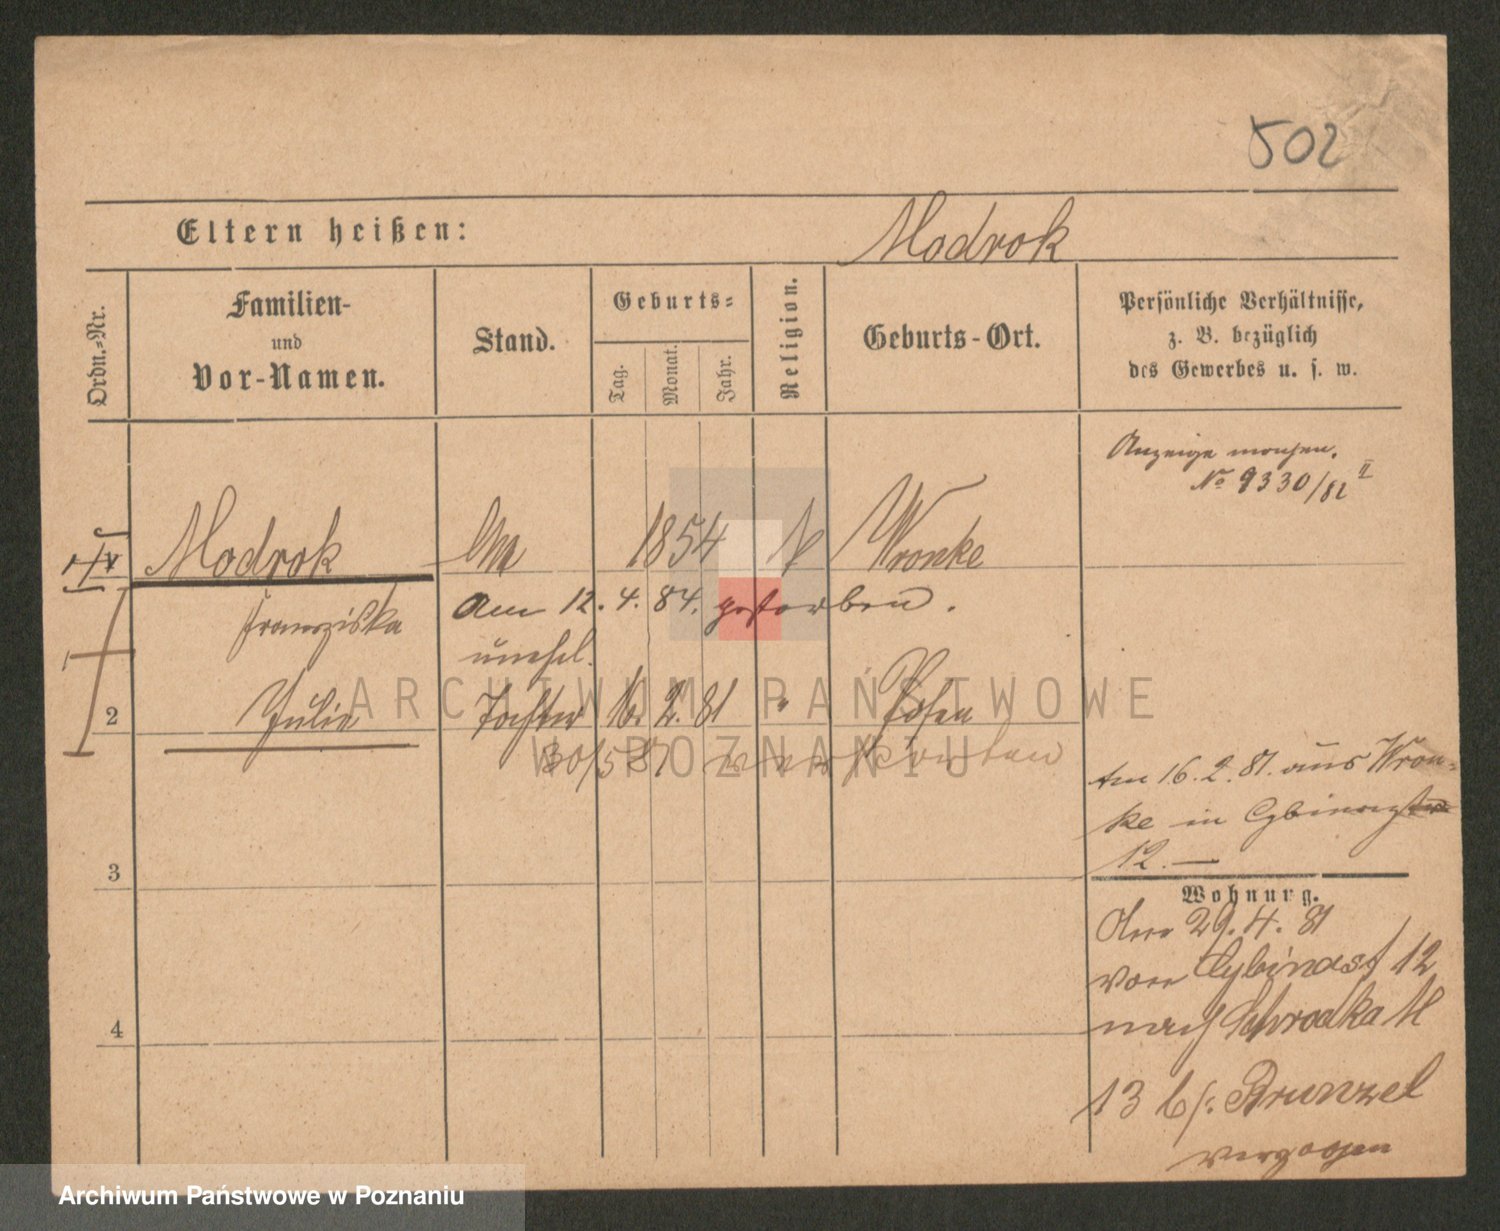 502
Eltern heißen:
Modrok
Ordn.-Nr.
Familien-
und
Vor-Namen.
Stand.
Geburts-
Tag.
Monat.
Jahr.
Religion.
Geburts-Ort.
Persönliche Verhältnisse,
z. B. bezüglich
des Gewerbes u. s. w.
Anzeige
No 9330/81 II
Modrok
1854
Wronke
Franziska
Am 12. 4. 84. gestorben.
unehl.
2 Julie Tochter 16. 2. 81 " Posen
30/5 87 verstorben
Am 16. 2. 81. aus Wron-
ke in
12. —
3
Wohnung.
Den 29. 4. 81
von Cybinast 12
4
nach Schrodka M
13 b/: Brunzel
verzogen
ARCHIWUM PAŃSTWOWE
W POZNANIU
Archiwum Państwowe w Poznaniu